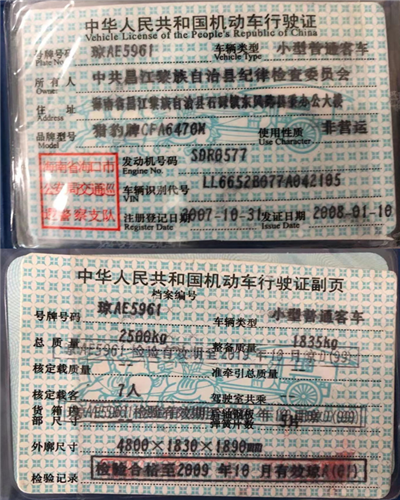 中华人民共和国机动车行驶证
Vehicle License of the People's Republic of China
号牌号码 琼AE5961 车辆类型 小型普通客车
Plate No. Vehicle Type
所有人 中共昌江黎族自治县纪律检查委员会
Owner
住址 海南省昌江黎族自治县石碌镇东风路县委办公大楼
Address
品牌型号 猎豹牌CFA6470M 使用性质 非营运
Model Use Character
海南省海口市 发动机号码 SDR0577
Engine No.
公安局交通巡 车辆识别代号 LL66S2B077A042105
VIN
逻警察支队 注册登记日期 2007-10-31 发证日期 2008-01-10
Register Date Issue Date
中华人民共和国机动车行驶证副页
档案编号
号牌号码 琼AE5961 车辆类型 小型普通客车
总质量 2500kg 整备质量 1835kg
琼AE5961 检验有效期至
核定载质量 准牵引总质量
核定载客 7人 驾驶室共乘
货箱
部尺寸 弹簧片数 5片
外廓尺寸 4800×1830×1890mm
检验记录 检验合格至2009年10月有效琼A(01)